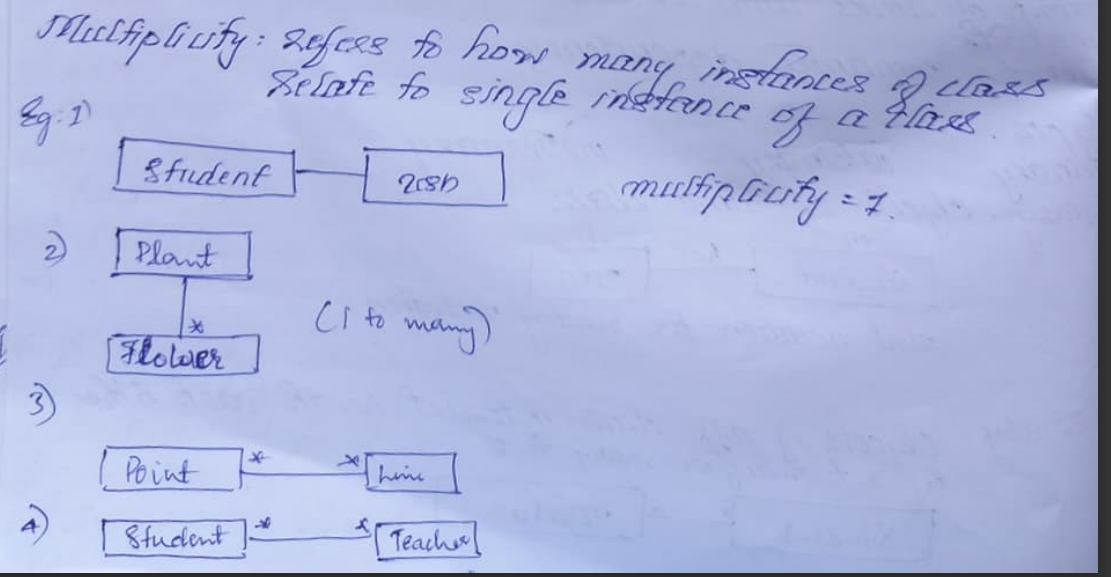 Multiplicity: refers to how many instances of class
relate to single instance of a class.
Eg: 1)
Student
multiplicity = 1.
2) Plant
*
Flower
(1 to many)
3)
Point * * Line
4) Student * * Teacher